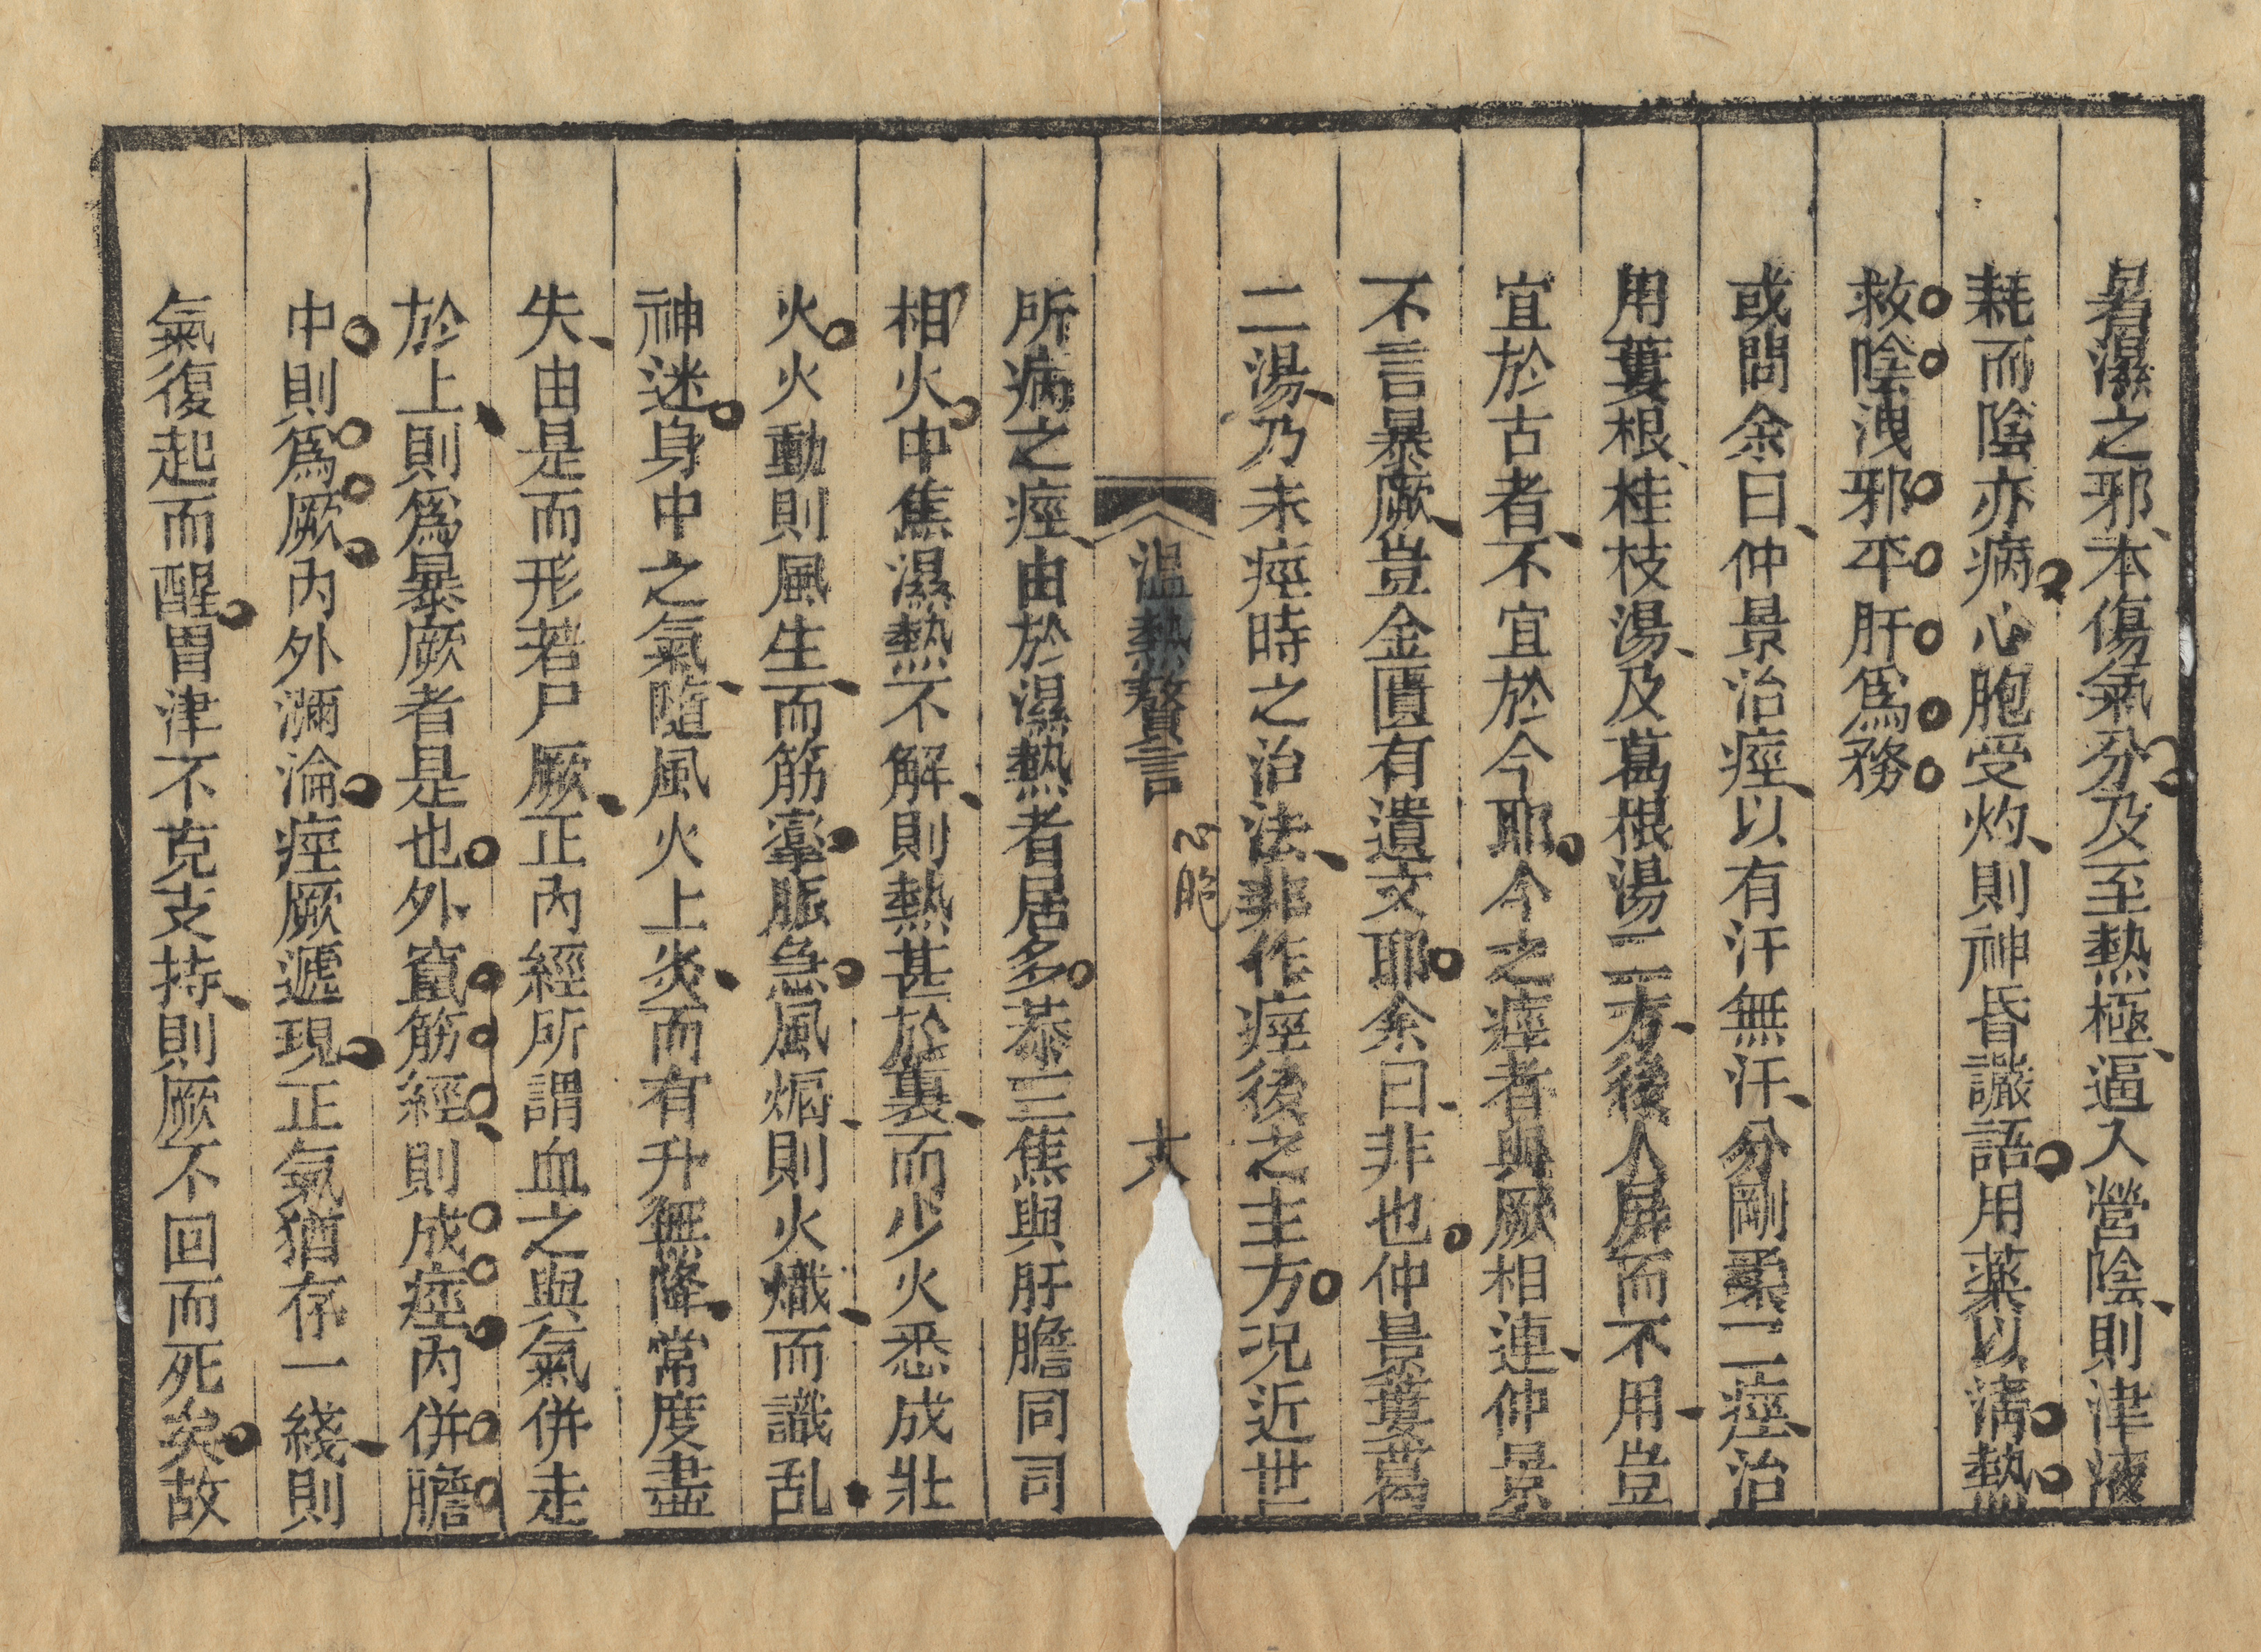 暑濕之邪本傷氣分及至熱極逼入營陰則津液
耗而陰亦病心胞受灼則神昏譫語用藥以清熱
救陰洩邪平肝爲務
或問余曰仲景治痙以有汗無汗分剛柔二痙治
用蔞根桂枝湯及葛根湯二方後人屏而不用豈
宜於古者不宜於今耶今之痙者與厥相連仲景
不言暴厥豈金匱有遺文耶余曰非也仲景蔞葛
二湯乃未痙時之治法非作痙後之主方況近世
溫熱贅言
心胞
所病之痙由於濕熱者居多葢三焦與肝膽同司
相火中焦濕熱不解則熱甚於裏而少火悉成壯
火火動則風生而筋攣脈急風煽則火熾而識乱
神迷身中之氣隨風火上炎而有升無降常度盡
失由是而形若尸厥正內經所謂血之與氣併走
於上則爲暴厥者是也外竄筋經則成痙內併膽
中則爲厥內外瀰淪痙厥遞現正氣猶存一綫則
氣復起而醒胃津不克支持則厥不回而死矣故